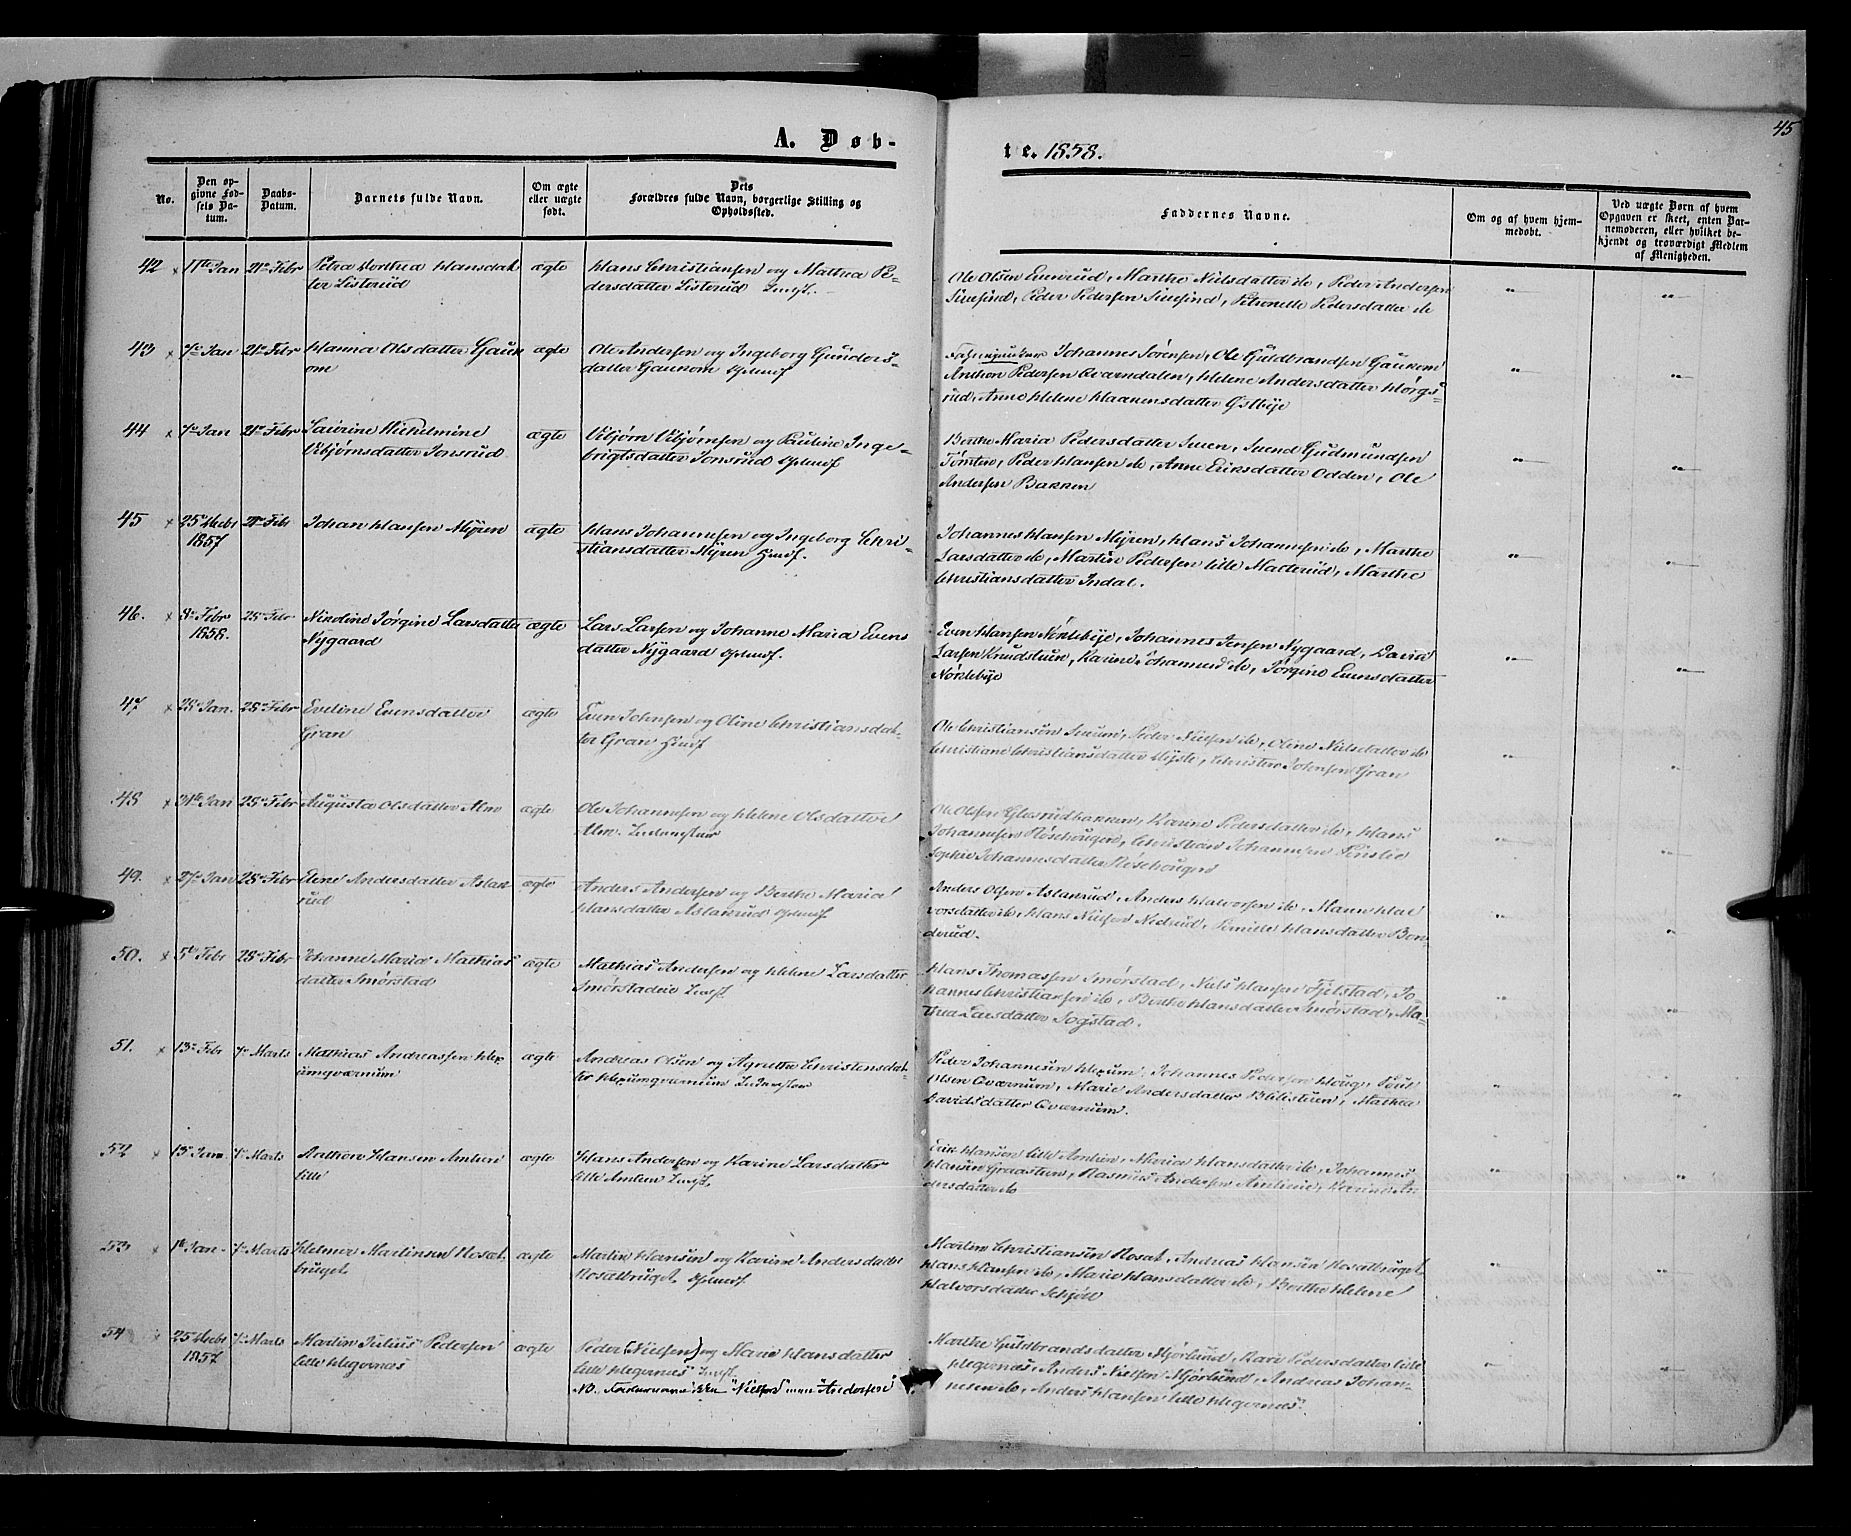 45
A. Døb-
te. 1858.
No.
Den op-
givne Fød-
sels Da-
tum.
Daabs-
Datum.
Barnets fulde Navn.
Om ægte
eller uægte
født.
Dets
Forældres fulde Navn, borgerlige Stilling og
Opholdssted.
Faddernes Navne.
Om og af hvem hjem-
medøbt.
Ved uægte Børn af hvem
Opgaven er skeet, enten Bar-
nemoderen, eller hvilket be-
kjendt og troværdigt Medlem
af Menigheden.
42 11te Jan 21e Febr Petra Dorthea Hansdat
ter Listerud
ægte
Hans Christiansen og Mathea Pe-
dersdatter Listerud
Ole Olsen Marthe Nilsdatter do, Peder Andersen
Peder Pedersen Petronelle Pedersdatter do
43 7e Jan 21e Febr Hanna Olsdatter Gauk
om
ægte
Ole Andersen og Ingeborg Gunders-
datter Gaukom
Johannes Sørensen, Ole Guldbrandsen Gaukom
Anthon Pedersen Qværndalen, Helene Andersdatter Hørgs-
rud, Anne Helene Haakensdatter Østbye
44 7e Jan 21e Febr Laurine Wilhelmine
Vebjørnsdatter Jonsrud
ægte
Vebjørn Vebjørnsen og Pauline Inge-
brigtsdatter Jonsrud
Berthe Maria Pedersdatter Svend Gudmundsen
Tømten, Peder Hansen do, Anne Eriksdatter Odden, Ole
Andersen Bakken
45 25e Decbr
1857
21e Febr Johan Hansen Myren
ægte
Hans Johannesen og Ingeborg Chri-
stiansdatter Myren
Johannes Hansen Myren, Hans Johannesen do, Marthe
Larsdatter do, Martin Pedersen lille Malterud, Marthe
Christiansdatter Indal.
46. 8e Febr
1858.
28e Febr Nicoline Jørgine Larsdatter
Nygaard
ægte
Lars Larsen og Johanne Maria Evens
datter Nygaard
Even Hansen Nøklebye, Johannes Jensen Nygaard, David
Larsen Knudstuen, Karine Johannesd do, Jørgine Evensdatter
Nøklebye
47 28e Jan. 28e Febr Eveline Evensdatter
Gran
ægte
Even Johnsen og Oline Christiansdat-
ter Gran
Ole Christiansen Peder Nilsen do, Oline Nilsdatter do
Christiane Christiansdatter Christen Johnsen Gran
48 31te Jan 28e Febr Augusta Olsdatter Alm
ægte
Ole Johannesen og Helene Olsdatter
Alm.
Ole Olsen Karine Pedersdatter do, Hans
Johannesen Røsehougen, Christian Johannesen
Sophie Johannesdatter Røsehougen
49. 27e Jan 28e Febr Elene Andersdatter Aslak
rud
ægte
Anders Andersen og Berthe Maria
Hansdatter Aslakrud
Anders Olsen Aslakrud, Anders Halvorsen do, Hal
vorsdatter do, Hans Nilsen Nedrud, Pernille Hansdatter Bon-
derud.
50. 5te Febr 28e Febr Johanne Maria Mathias
datter Smørstad
ægte
Mathias Andersen og Helene Larsdatter
Smørstadeie
Hans Thomassen Smørstad, Niels Hansen Fjelstad, Jo-
hannes Christiansen do, Berthe Hansdatter Smørstad, Ma-
thea Larsdatter Sogstad.
51. 13e Febr 7e Marts Mathias Andreassen Hex
umqværnum
ægte
Andreas Olsen og Agnethe Christensdat-
ter Hexumqværnum
Peder Johannesen Hexum, Johannes Pedersen Houg, Poul
Olsen Qværnum, Marie Andersdatter Mathea
Davidsdatter Qværnum.
52 13e Jan. 7e Marts Anthon Hansen Amlien
lille
ægte
Hans Andersen og Karine Larsdatter
lille Amlien
Erik Hansen lille Amlien, Maria Hansdatter do, Johannes
Hansen Graasteen, Rasmus Andersen Amlien, Karine An
dersdatter do
53 1te Jan. 7e Marts Helmer Martinsen Rosæt
bruget
ægte
Martin Hansen og Karine Andersdatter
Rosætbruget
Martin Christiansen Rosæt, Andreas Hansen Rosætbruget
Hans Hansen do, Marie Hansdatter do, Berthe Helene
Halvorsdatter Schjøll
54 25e Decbr
1857
7e Marts Martin Julius Pedersen
lille Hegernæs
ægte
Peder (Nielsen) og Marie Hansdatter
lille Hegernæs
NB. Faderens Navn ikke "Nielsen" men "Andersen"
Marthe Guldbrandsdatter Mjørlund, Kari Pedersdatter lille
Hegernæs, Anders Nielsen Mjørlund, Andreas Johan-
nesen do, Anders Hansen lille Hegernæs.